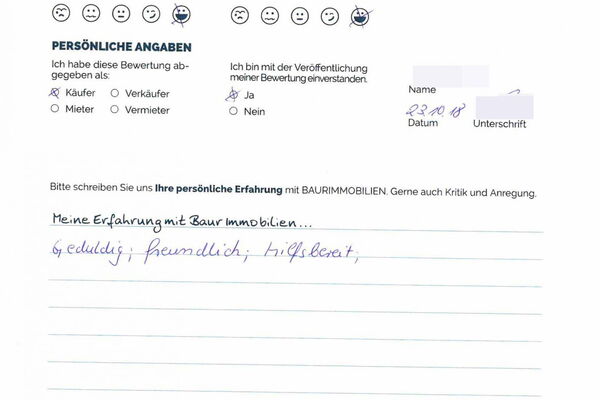 PERSÖNLICHE ANGABEN
Ich habe diese Bewertung ab-
gegeben als:
Käufer Verkäufer
Mieter Vermieter
Ich bin mit der Veröffentlichung
meiner Bewertung einverstanden.
Ja
Nein
Name
23.10.18
Datum Unterschrift
Bitte schreiben Sie uns Ihre persönliche Erfahrung mit BAURIMMOBILIEN. Gerne auch Kritik und Anregung.
Meine Erfahrung mit Baur Immobilien...
Geduldig; freundlich; hilfsbereit;